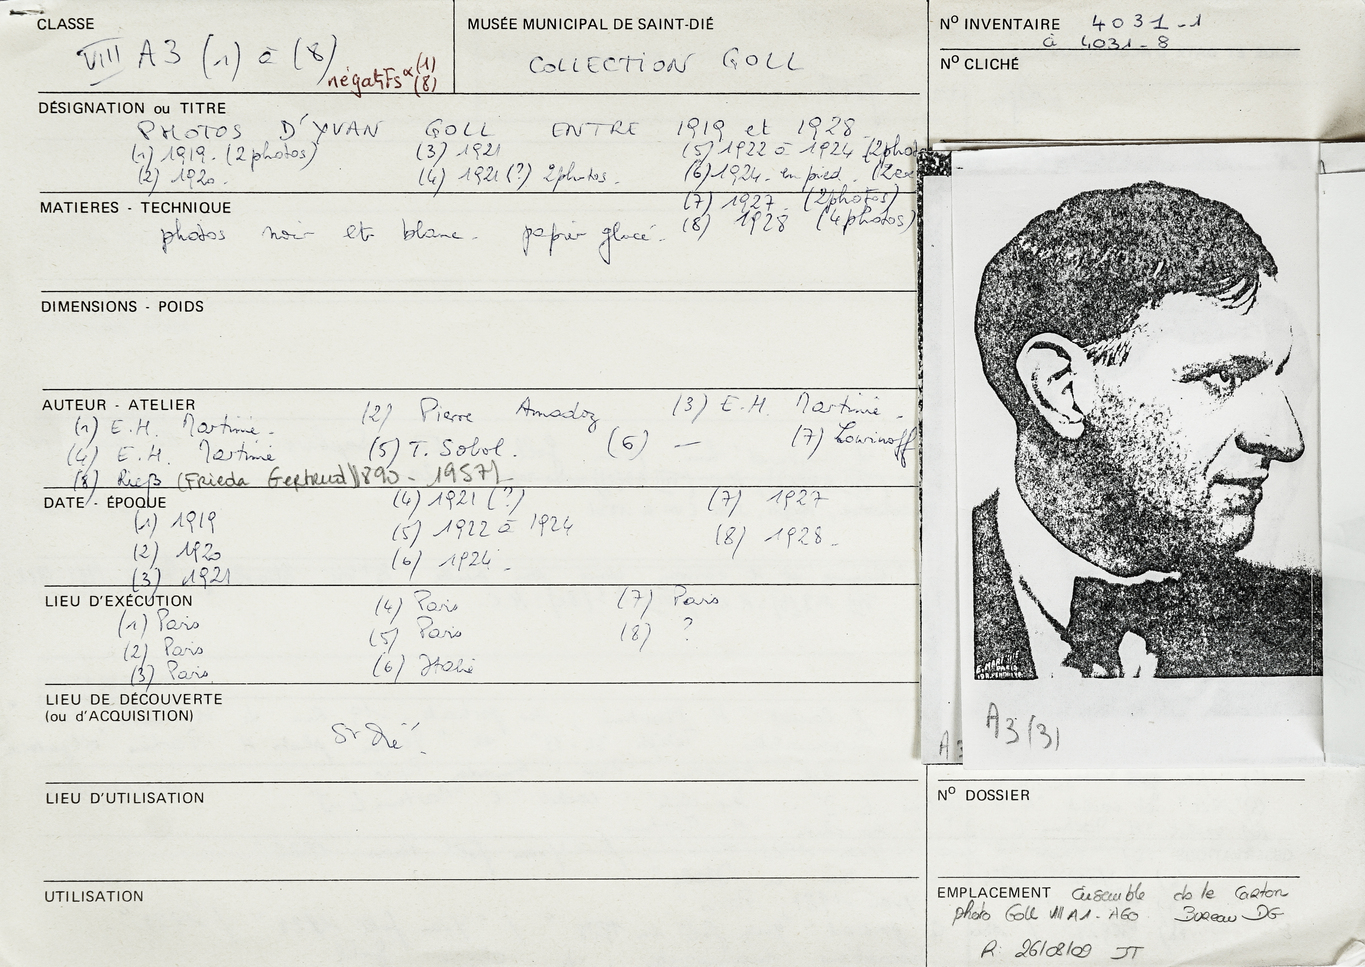 CLASSE
VIII A3 (1) à (8)
négatifs (1)
(8)
MUSÉE MUNICIPAL DE SAINT-DIÉ
COLLECTION GOLL
Nº INVENTAIRE 4031-1
à 4031-8
Nº CLICHÉ
DÉSIGNATION ou TITRE
PHOTOS D'YVAN GOLL ENTRE 1919 et 1928
(1) 1919. (2 photos) (3) 1921 (5) 1922 à 1924 (2 phot
(2) 1920. (4) 1921 (?) 2 photos. (6) 1924. en pied.
(7) 1927. (2 photos)
(8) 1928 (4 photos)
MATIERES - TECHNIQUE
photos noir et blanc. papier glacé.
DIMENSIONS - POIDS
AUTEUR - ATELIER
(1) E.H. Martinié. (2) Pierre (3) E.H. Martinié.
(4) E.H. Martinié (5) T. Sobol. (6) — (7)
(8) Rieß (Frieda Gertrud) 1890 - 1957)
DATE - ÉPOQUE
(1) 1919 (4) 1921 (?) (7) 1927
(2) 1920 (5) 1922 à 1924 (8) 1928.
(3) 1921 (6) 1924.
LIEU D'EXÉCUTION
(1) Paris (4) Paris (7) Paris
(2) Paris (5) Paris (8) ?
(3) Paris (6) Italie
LIEU DE DÉCOUVERTE
(ou d'ACQUISITION)
St Dié.
LIEU D'UTILISATION
UTILISATION
A3(3)
Nº DOSSIER
EMPLACEMENT Ensemble ds le Carton
photo Goll VIII A1 - A60 Bureau DG
R. 26/08/09 JT